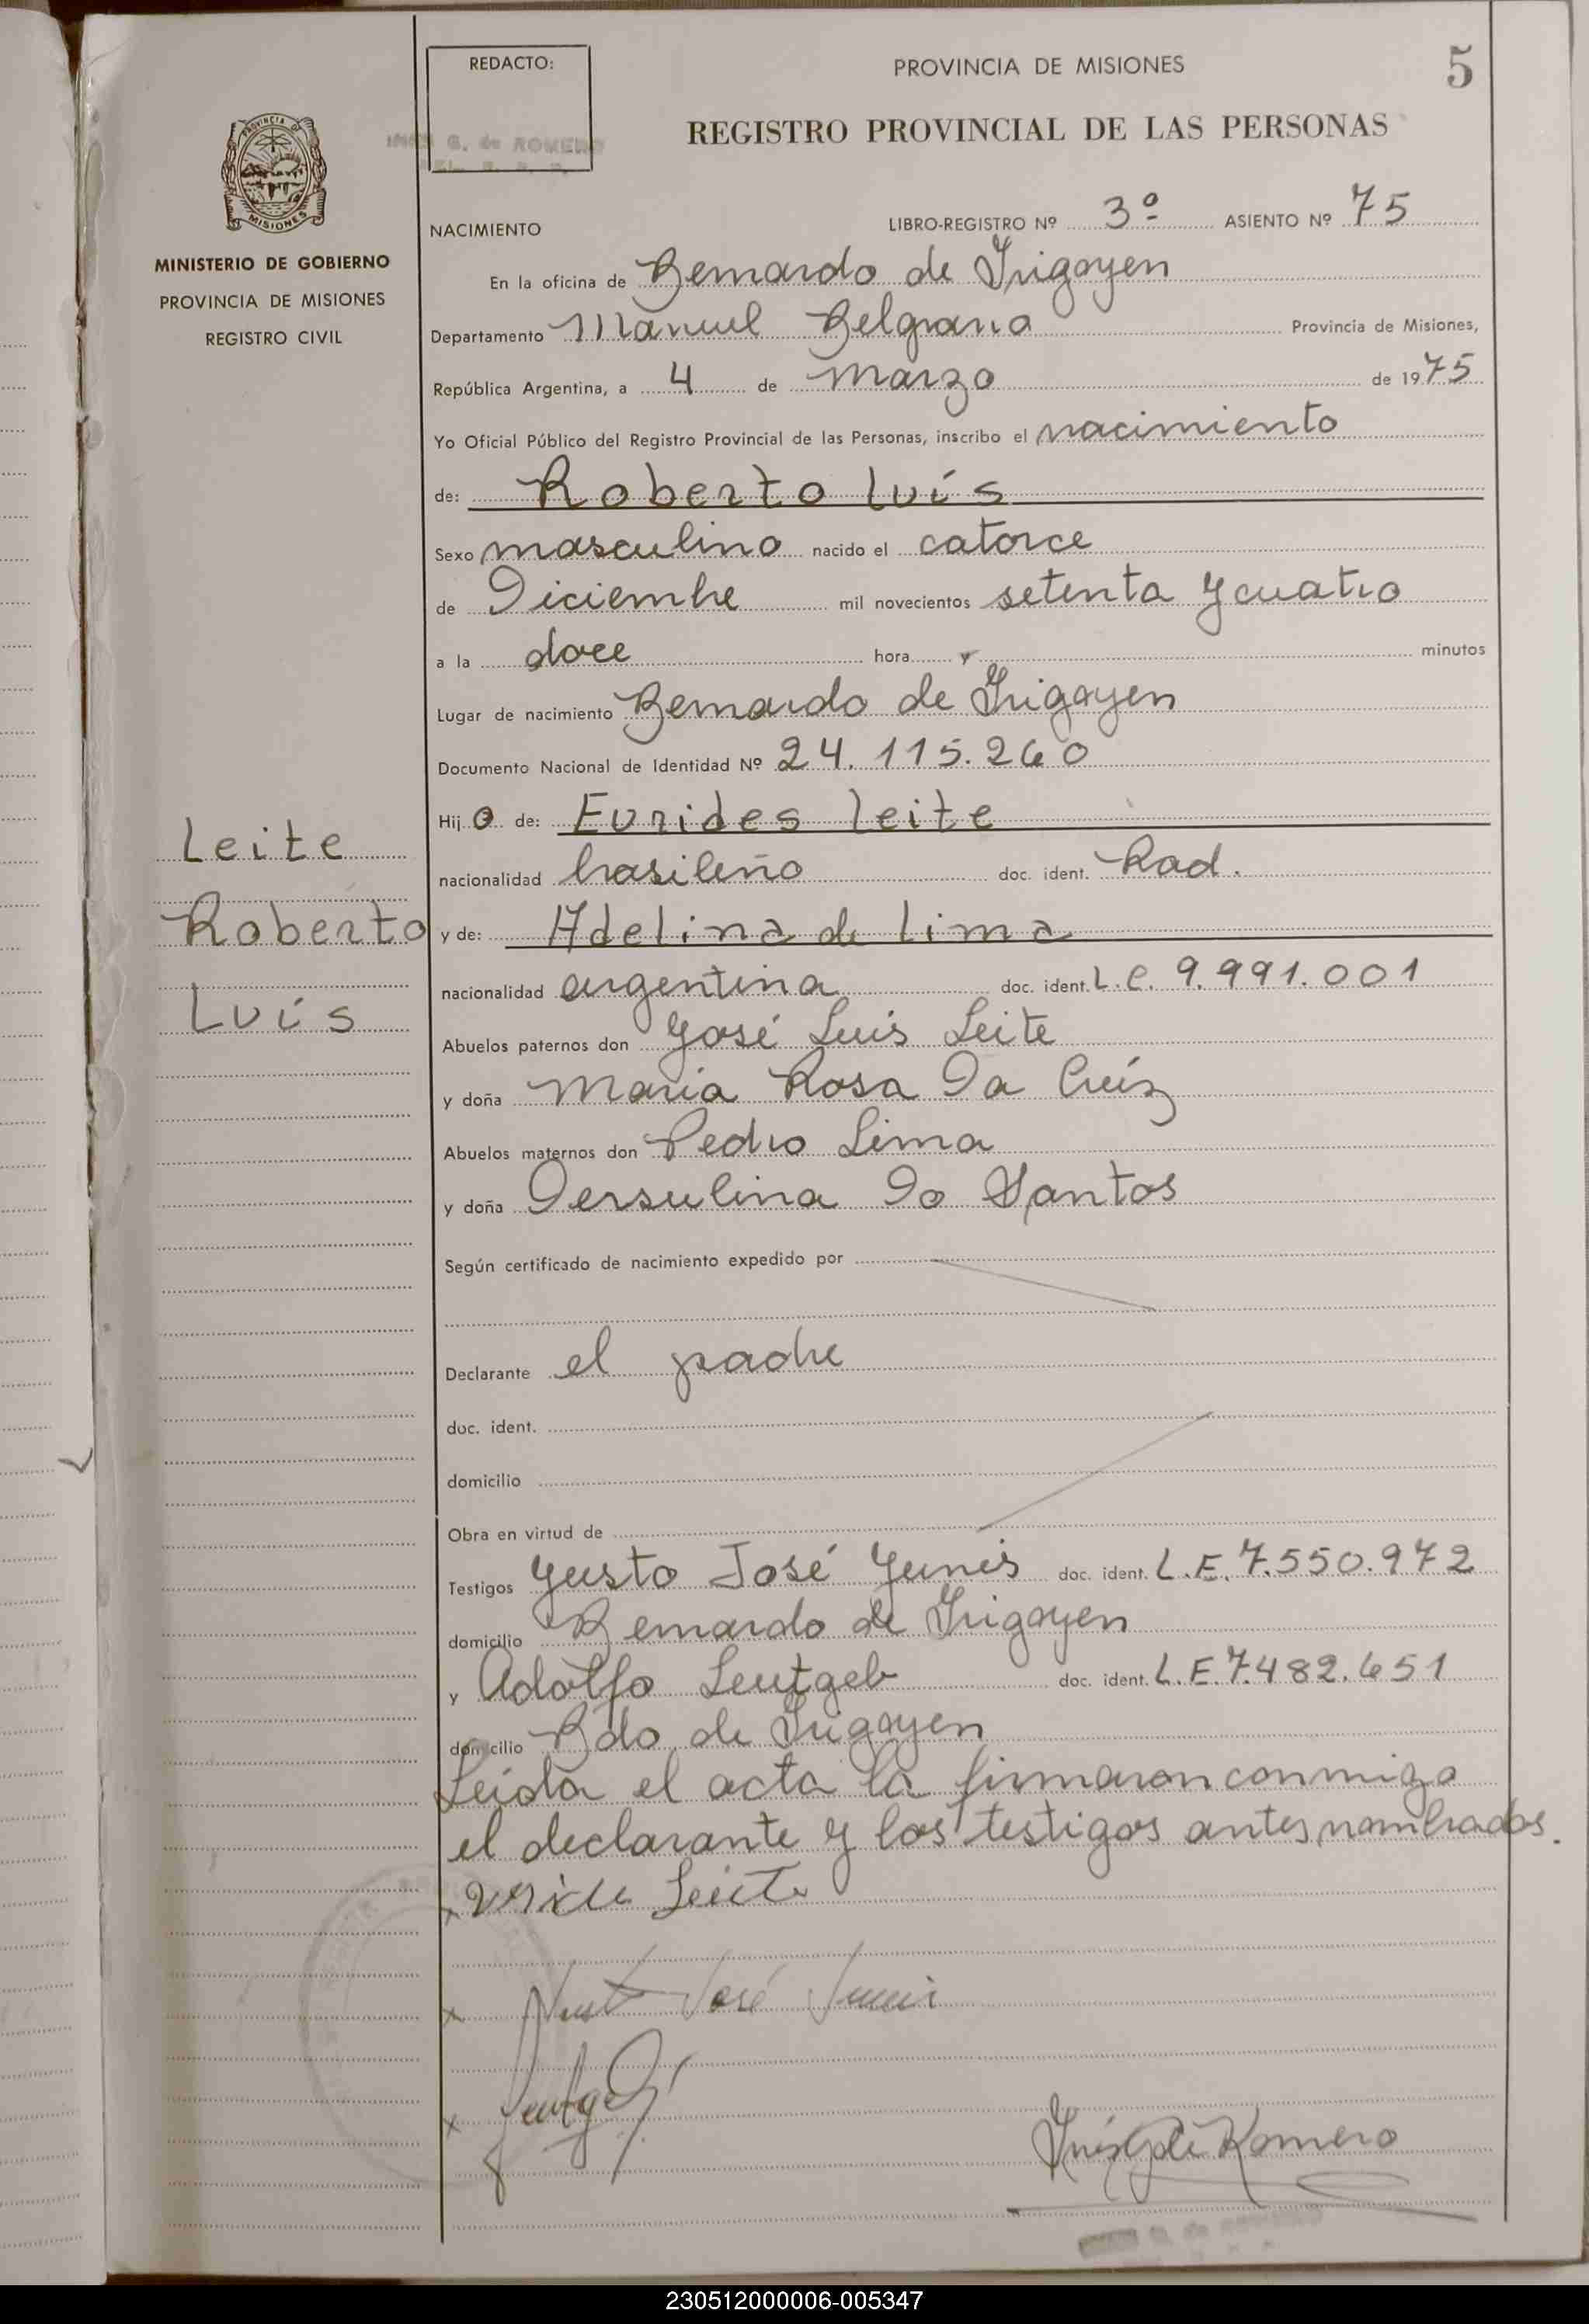 REDACTO:
G. de ROMERO
PROVINCIA DE MISIONES
5
REGISTRO PROVINCIAL DE LAS PERSONAS
PROVINCIA DE
MISIONES
MINISTERIO DE GOBIERNO
PROVINCIA DE MISIONES
REGISTRO CIVIL
NACIMIENTO LIBRO-REGISTRO Nº 3º ASIENTO Nº 75
En la oficina de Bernardo de Irigoyen
Departamento Manuel Belgrano Provincia de Misiones,
República Argentina, a 4 de Marzo de 1975
Yo Oficial Público del Registro Provincial de las Personas, inscribo el nacimiento
de: Roberto Luís
Sexo masculino nacido el catorce
de Diciembre mil novecientos setenta y cuatro
a la doce hora y minutos
Lugar de nacimiento Bernardo de Irigoyen
Documento Nacional de Identidad Nº 24.115.260
Hijo de: Eurides Leite
nacionalidad brasileño doc. ident. Rad.
y de: Adelina de Lima
nacionalidad argentina doc. ident. L.C. 9.991.001
Abuelos paternos don José Luis Leite
y doña Maria Rosa Da Cruz
Abuelos maternos don Pedro Lima
y doña Dersulina Do Santos
Según certificado de nacimiento expedido por
Declarante el padre
doc. ident.
domicilio
Obra en virtud de
Testigos Justo José Yunis doc. ident. L.E. 7.550.972
domicilio Bernardo de Irigoyen
y Adolfo Leutgeb doc. ident. L.E. 7.482.651
domicilio Bdo. de Irigoyen
Leida el acta la firmaron conmigo
el declarante y los testigos antes nombrados.
Leite
Roberto
Luís
x Leite
x José
x
Inés G de Romero
230512000006-005347